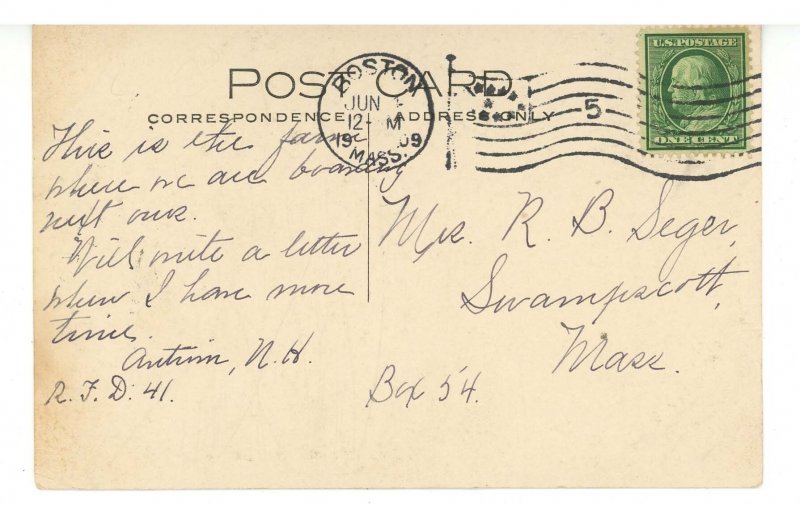 POST CARD
CORRESPONDENCE ADDRESS ONLY
BOSTON
JUN
12- M
1909
MASS.
5
U.S. POSTAGE
ONE CENT
This is the farm
where we are boarding
next ours.
Will write a letter
when I have more
time.
Antrim, N.H.
R.F.D. 41.
Mrs. R. B. Seger,
Swampscott,
Mass.
Box 54.